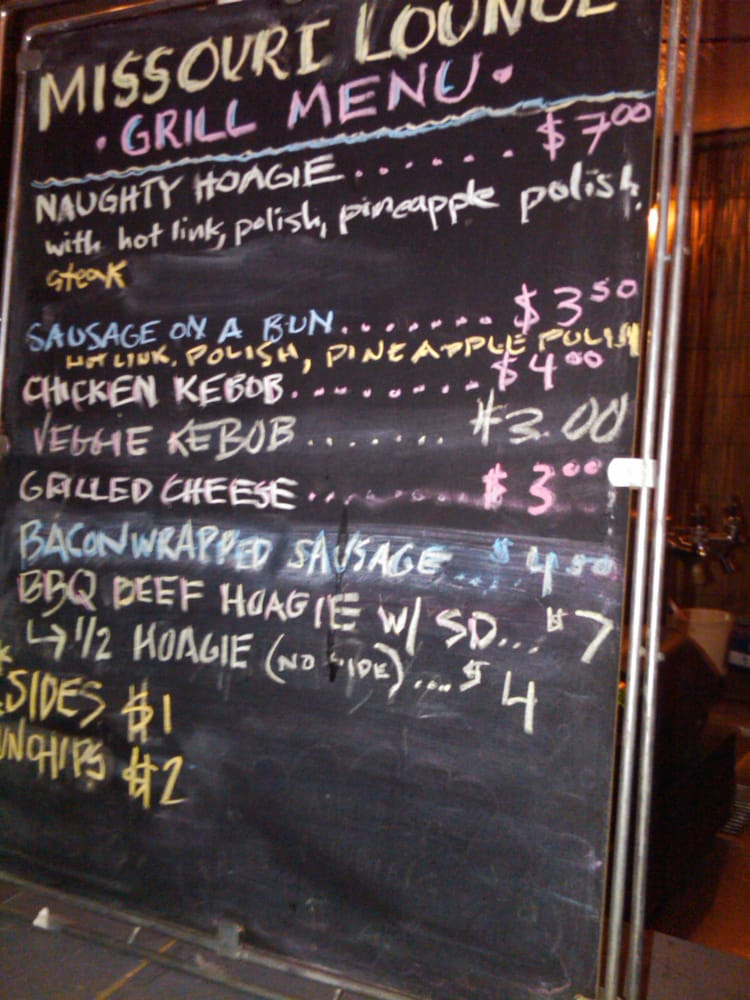 MISSOURI LOUNGE
• GRILL MENU •
NAUGHTY HOAGIE...... $7.00
with hot link, polish, pineapple polish,
steak
SAUSAGE ON A BUN....... $3.50
HOT LINK, POLISH, PINEAPPLE POLISH
CHICKEN KEBOB........ $4.00
VEGGIE KEBOB....... $3.00
GRILLED CHEESE........ $3.00
BACON WRAPPED SAUSAGE.... $4.50
BBQ BEEF HOAGIE W/ SD... $7
↳ 1/2 HOAGIE (NO SIDE).... $4
SIDES $1
UNCHIPS $2